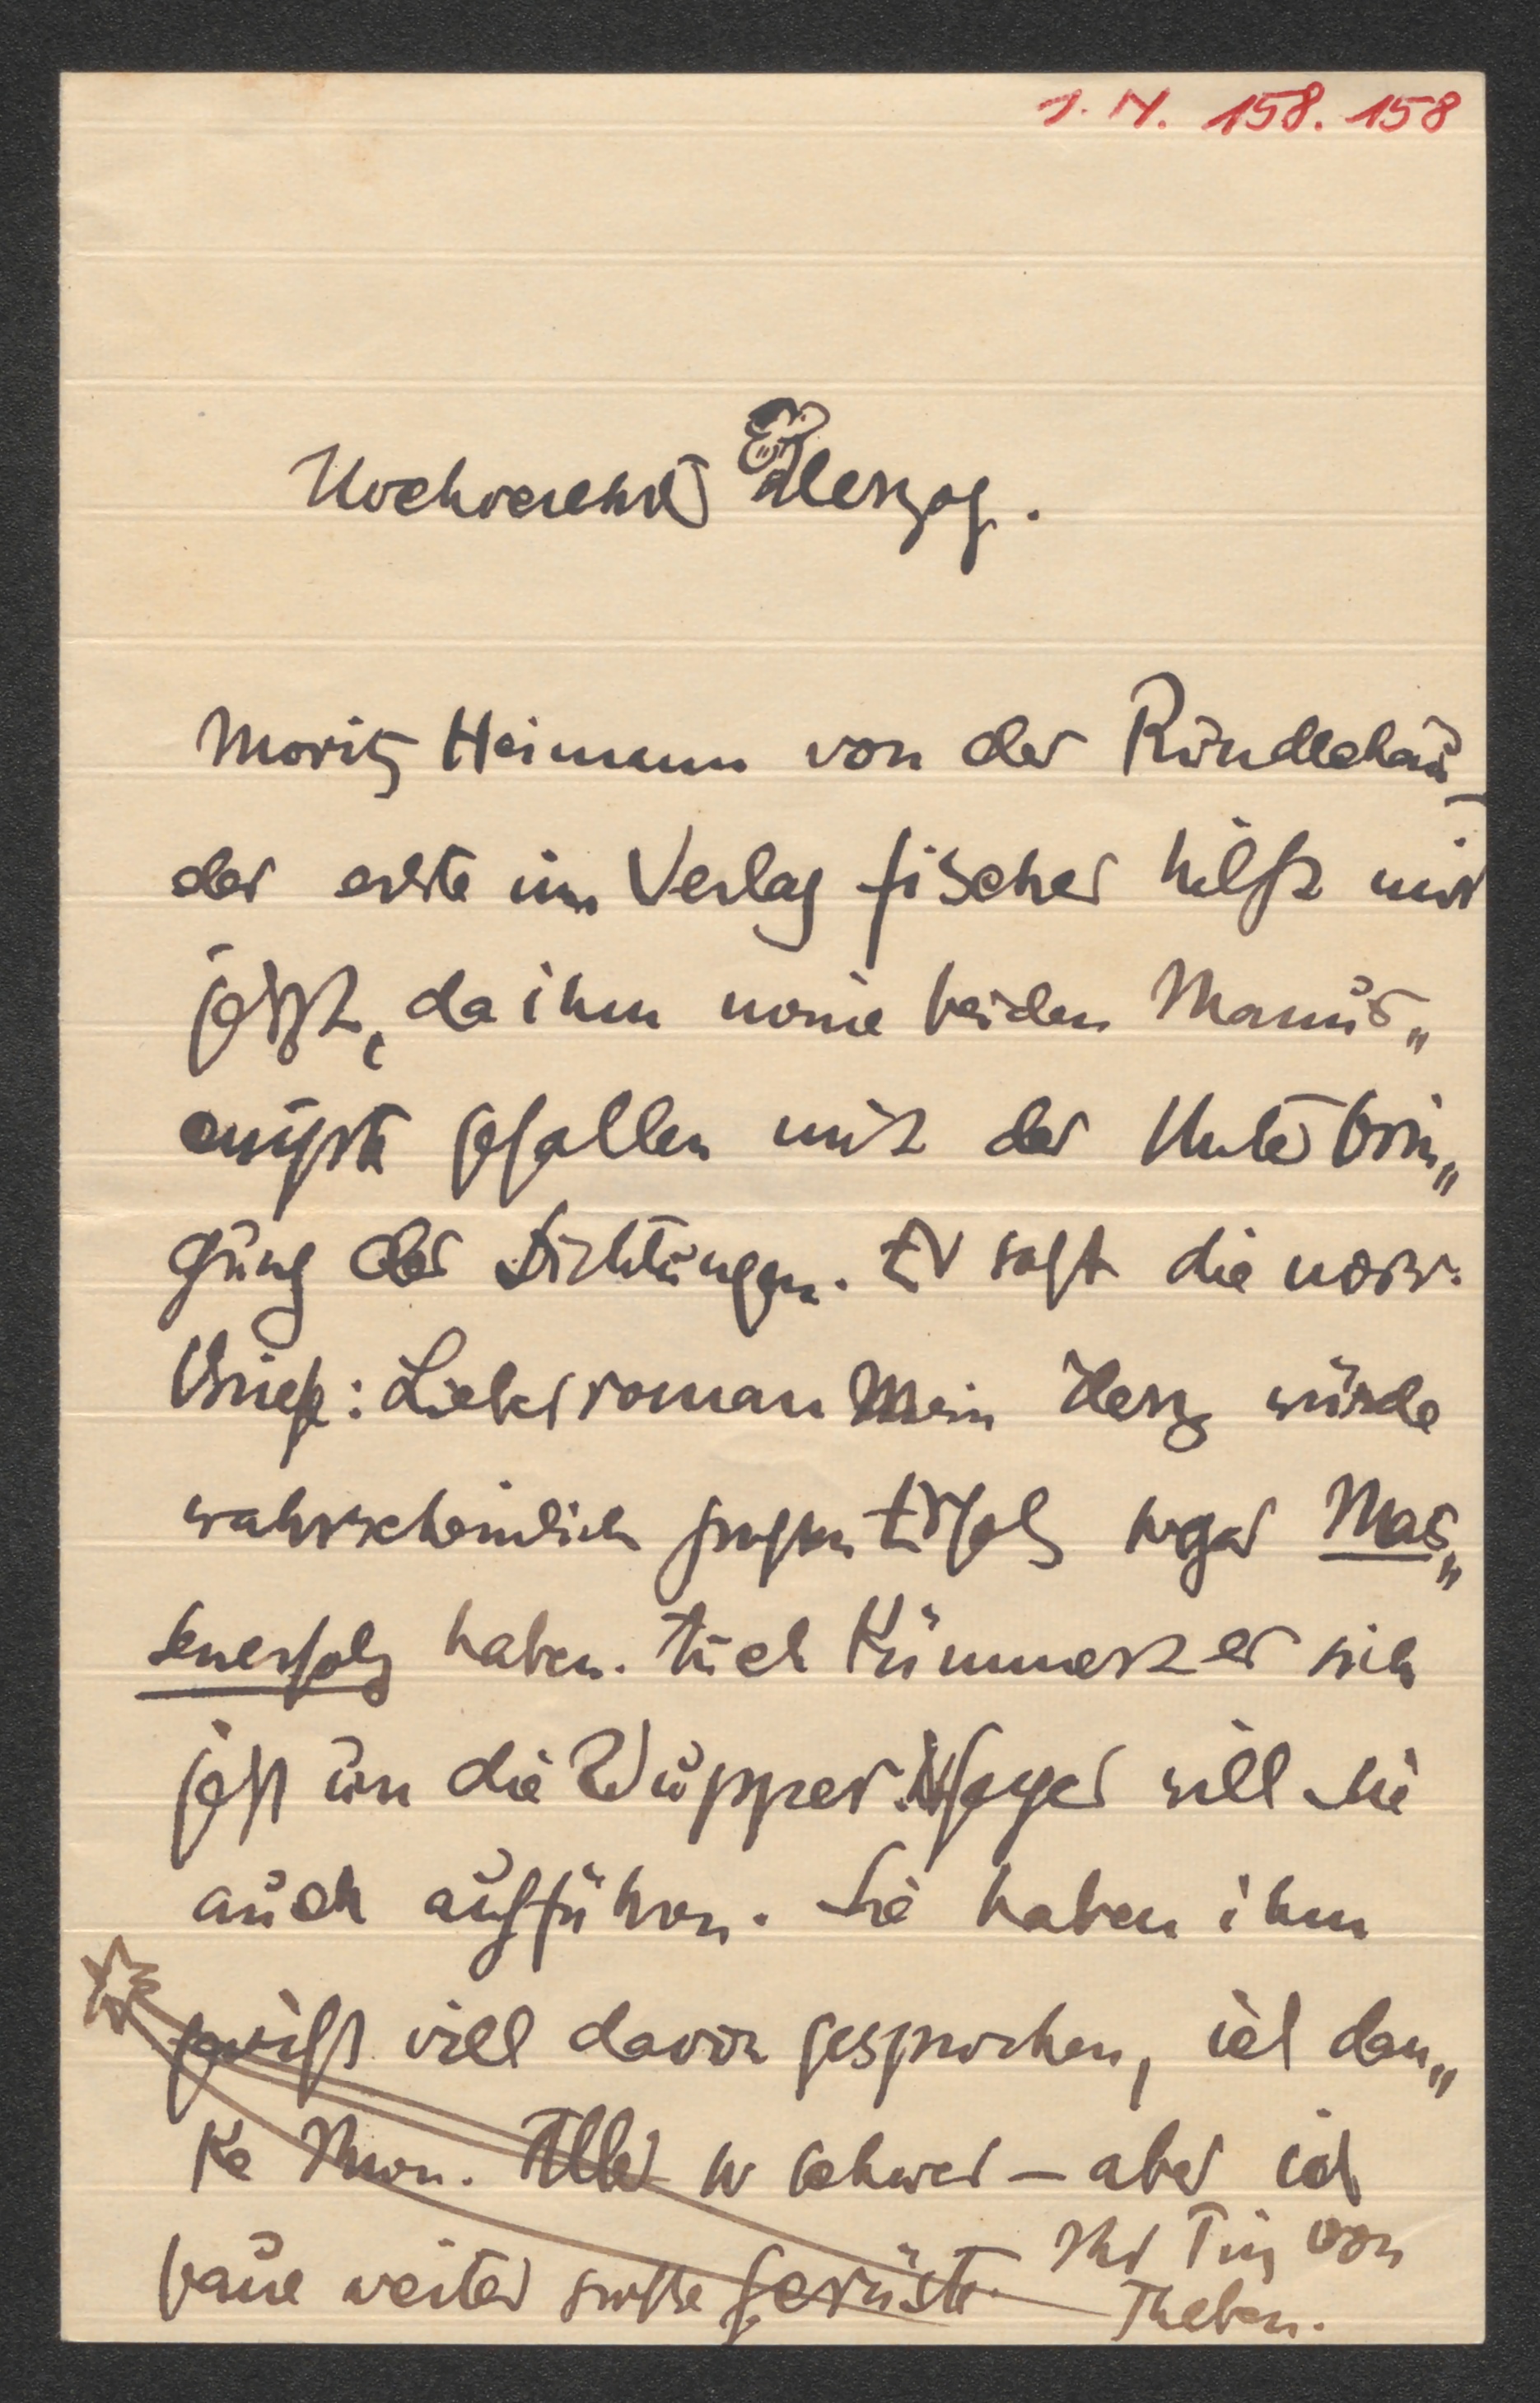 J. N. 158.158
Hochverehrter Herzog.
Moritz Heimann von der Rundschau
der erste im Verlag Fischer hilft mir
jetzt, da ihm meine beiden Manus„
cripte gefallen mit der Unterbrin„
gung der Dichtungen. Er sagt die norw.
Briefe: Liebesroman Mein Herz würde
wahrscheinlich großen Erfolg sogar Mas„
senerfolg haben. Auch kümmert er sich
jetzt um die Wupper. Mayer will sie
auch aufführen. Sie haben ihm
gewiß viel davon gesprochen, ich dan„
ke Ihnen. Alles so schwer – aber ich
baue weiter große Gerüste. Ihr Tino von
Theben.